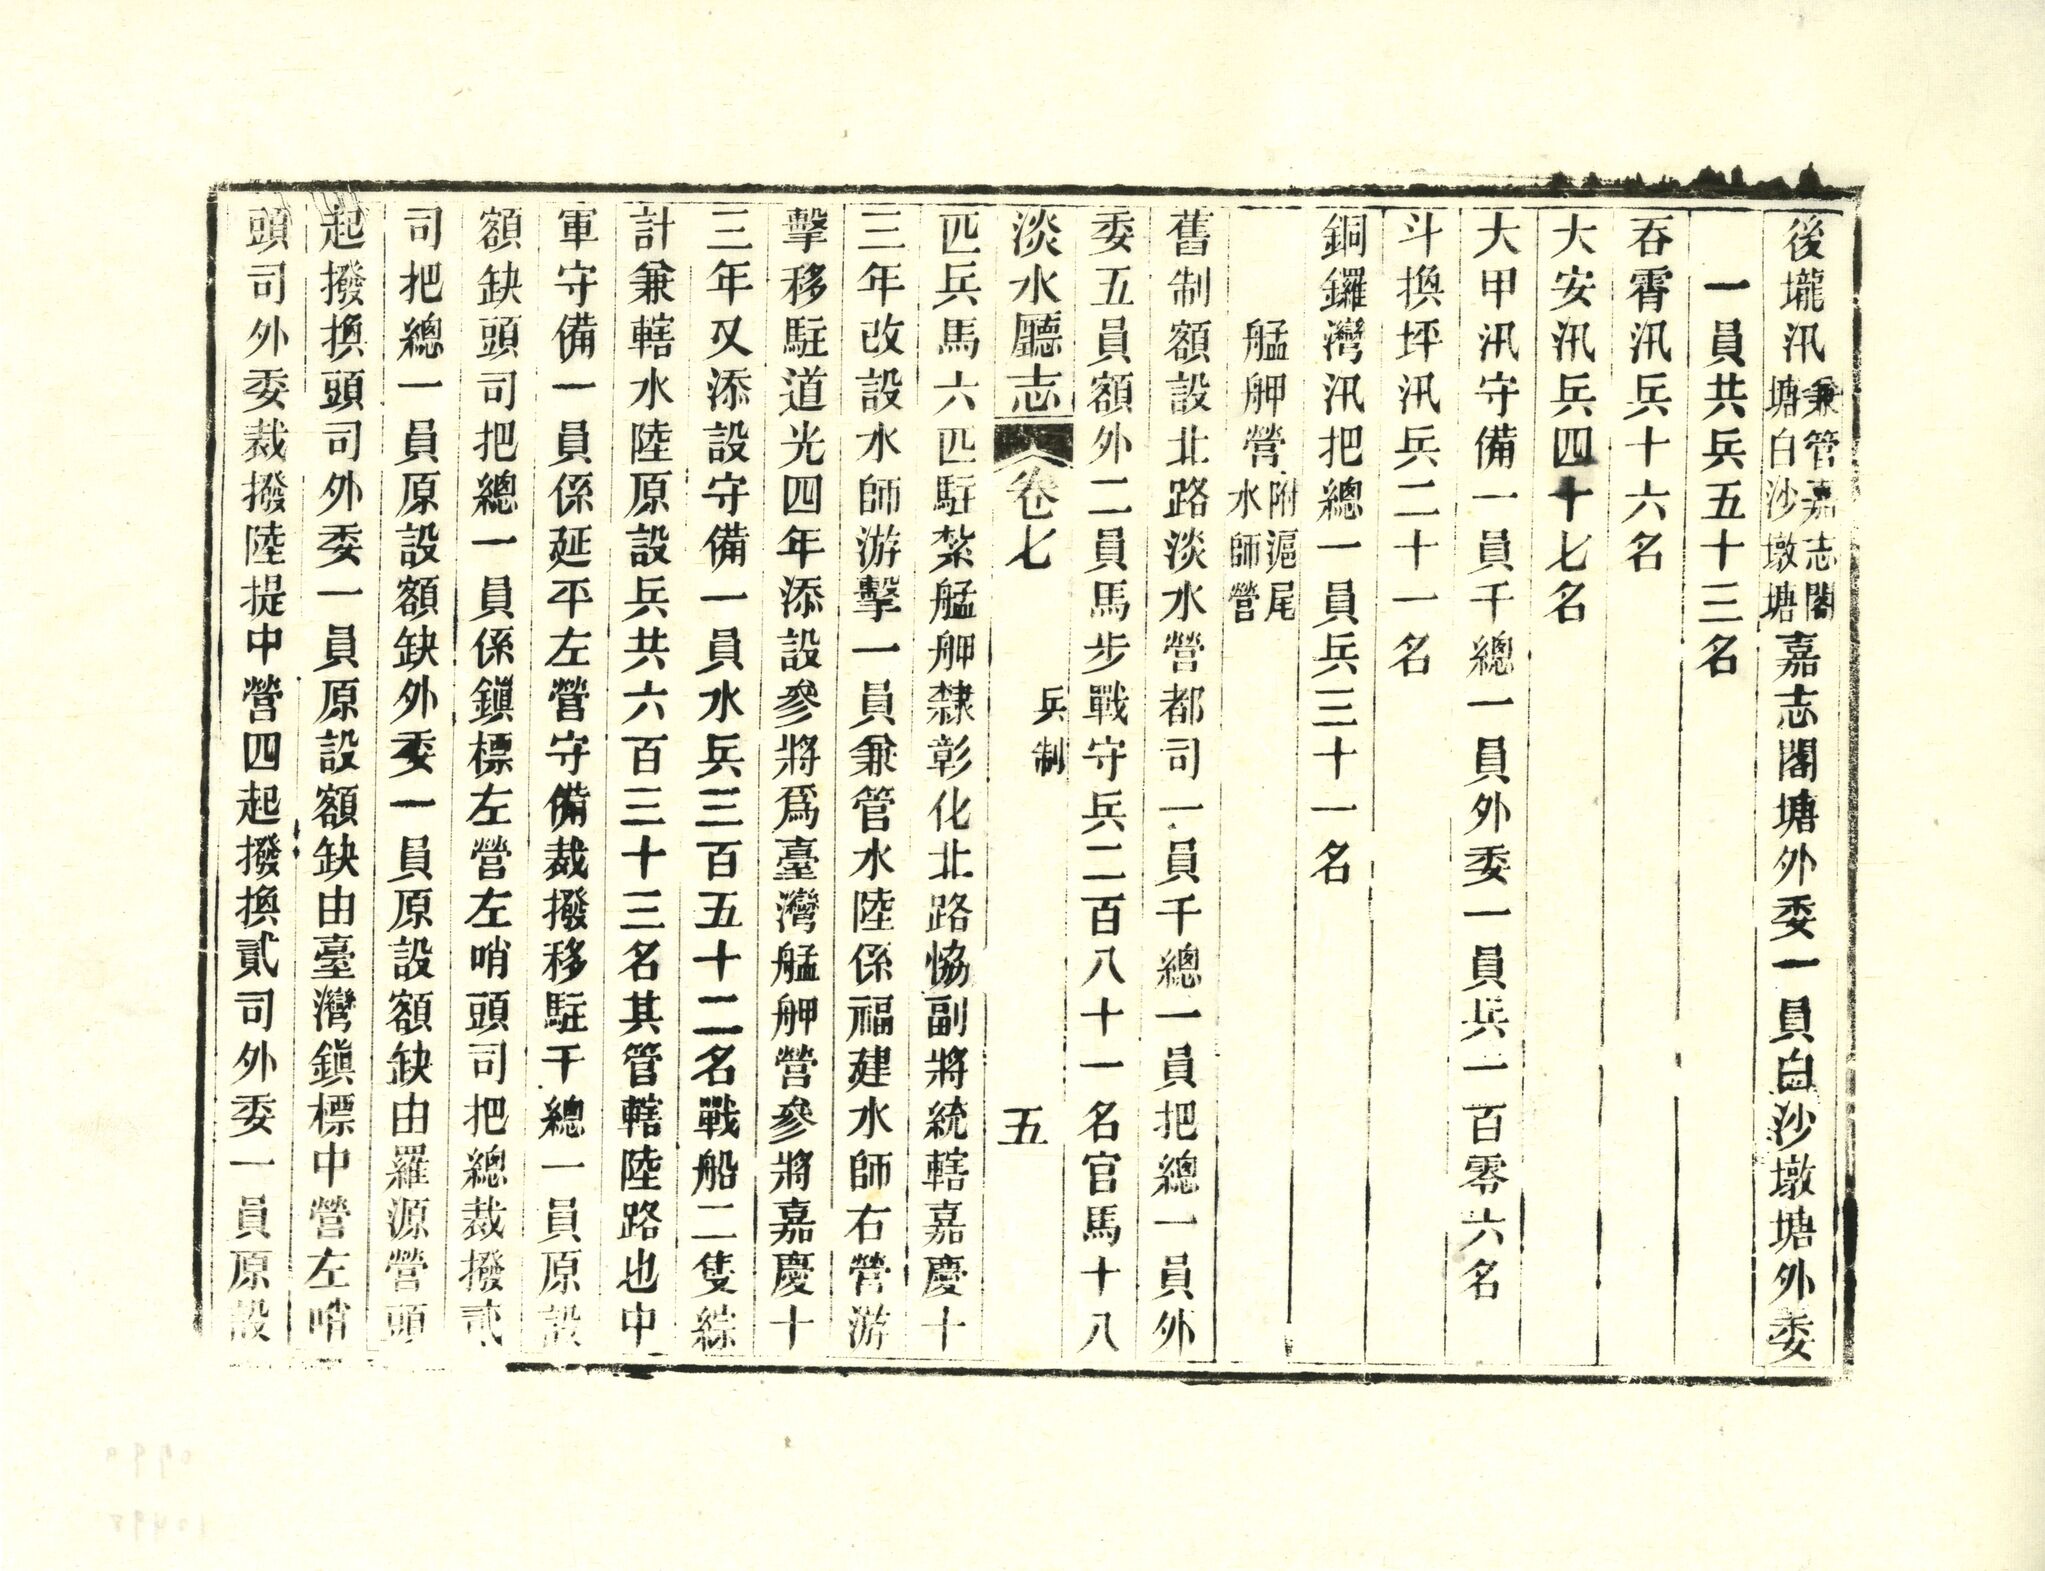 後壠汛兼管嘉志閣塘白沙墩塘嘉志閣塘外委一員白沙墩塘外委
一員共兵五十三名
吞霄汛兵十六名
大安汛兵四十七名
大甲汛守備一員千總一員外委一員兵一百零六名
斗換坪汛兵二十一名
銅鑼灣汛把總一員兵三十一名
艋舺營附滬尾水師營
舊制額設北路淡水營都司一員千總一員把總一員外
委五員額外二員馬步戰守兵二百八十一名官馬十八
淡水廳志
卷七
兵制
五
匹兵馬六匹駐紮艋舺隸彰化北路協副將統轄嘉慶十
三年改設水師游擊一員兼管水陸係福建水師右營游
擊移駐道光四年添設參將爲臺灣艋舺營參將嘉慶十
三年又添設守備一員水兵三百五十二名戰船二隻綜
計兼轄水陸原設兵共六百三十三名其管轄陸路也中
軍守備一員係延平左營守備裁撥移駐千總一員原設
額缺頭司把總一員係鎭標左營左哨頭司把總裁撥貳
司把總一員原設額缺外委一員原設額缺由羅源營頭
起撥換頭司外委一員原設額缺由臺灣鎭標中營左哨
頭司外委裁撥陸提中營四起撥換貳司外委一員原設